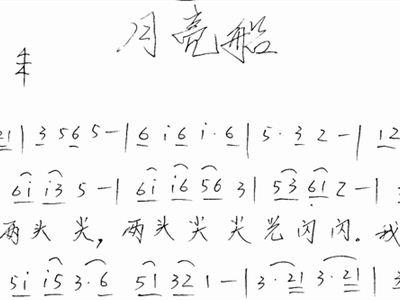 月亮船
21 | 3 56 5 - | 6 i 6 i · 6 | 5 · 3 2 - | 12
6i i3 5 - | 6i i6 56 3 | 53 61 2 - |
两头尖，两头尖尖光闪闪。我
5i i5 3·6 51 32 1 - | 3·21 3·21 |